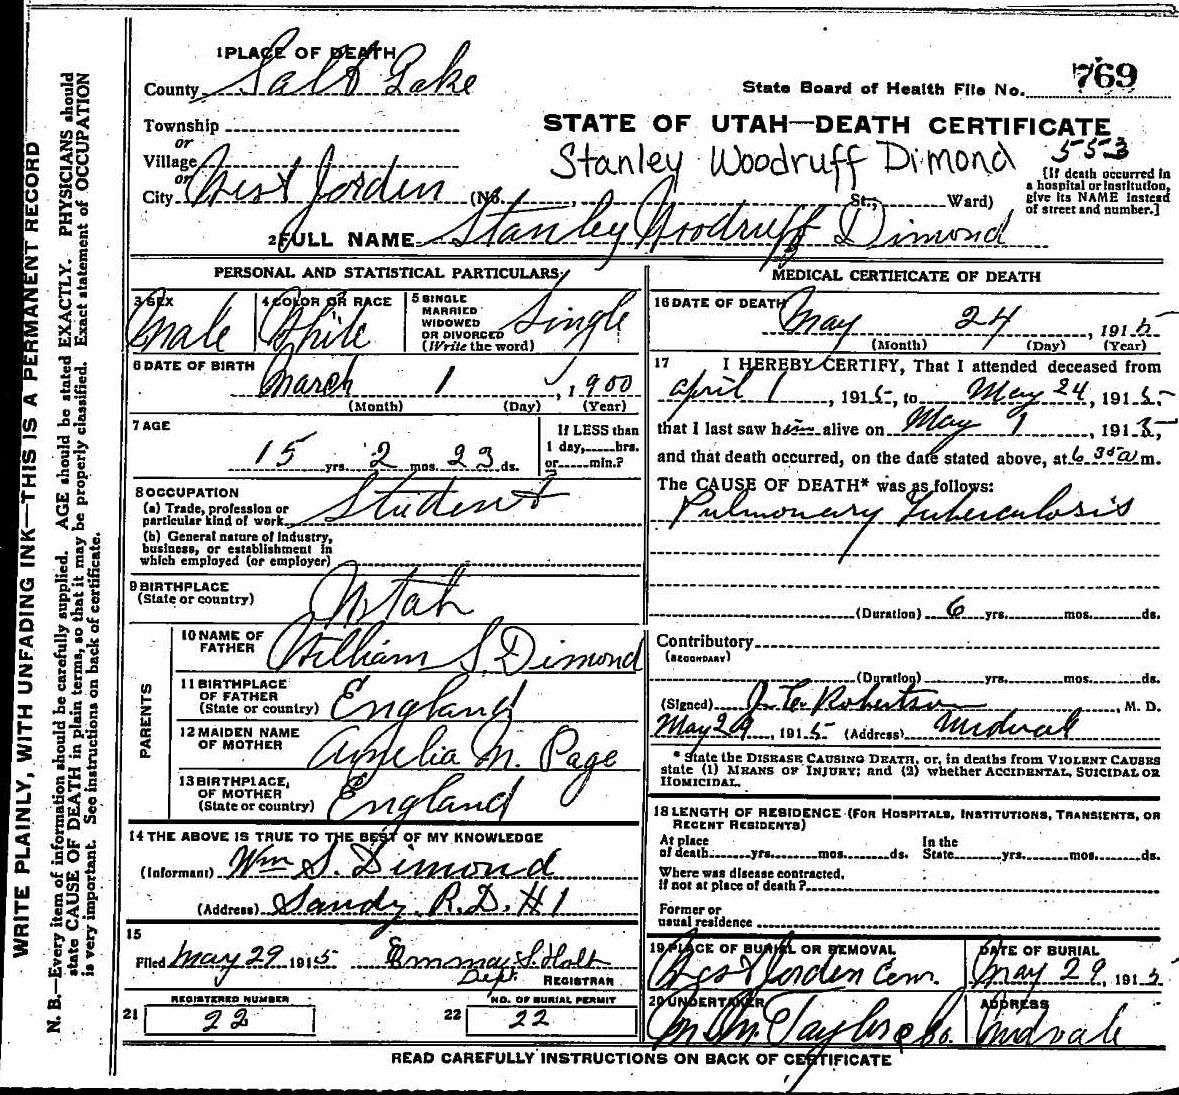 1 PLACE OF DEATH
County Salt Lake
State Board of Health File No. 769
Township
or
Village
or
City West Jorden (No. St.; Ward)
STATE OF UTAH—DEATH CERTIFICATE
Stanley Woodruff Dimond 553
[If death occurred in
a hospital or institution,
give its NAME instead
of street and number.]
2 FULL NAME Stanley Woodruff Dimond
PERSONAL AND STATISTICAL PARTICULARS
3 SEX
Male
4 COLOR OR RACE
White
5 SINGLE
MARRIED
WIDOWED
OR DIVORCED
(Write the word)
Single
6 DATE OF BIRTH
March 1, 1900
(Month) (Day) (Year)
7 AGE
15 yrs. 2 mos. 23 ds.
If LESS than
1 day, hrs.
or min.?
8 OCCUPATION
(a) Trade, profession or
particular kind of work Student
(b) General nature of industry,
business, or establishment in
which employed (or employer)
9 BIRTHPLACE
(State or country) Utah
PARENTS
10 NAME OF
FATHER William S. Dimond
11 BIRTHPLACE
OF FATHER
(State or country) England
12 MAIDEN NAME
OF MOTHER Amelia M. Page
13 BIRTHPLACE,
OF MOTHER
(State or country) England
14 THE ABOVE IS TRUE TO THE BEST OF MY KNOWLEDGE
(Informant) Wm S. Dimond
(Address) Sandy R.D. #1
15
Filed May 29 1915 Emma S. Holt
Dept. REGISTRAR
21 REGISTERED NUMBER
22
22 NO. OF BURIAL PERMIT
22
MEDICAL CERTIFICATE OF DEATH
16 DATE OF DEATH
May 24, 1915
(Month) (Day) (Year)
17 I HEREBY CERTIFY, That I attended deceased from
April 1, 1915, to May 24, 1915,
that I last saw him alive on May 1, 1915,
and that death occurred, on the date stated above, at 6 30 a m.
The CAUSE OF DEATH* was as follows:
Pulmonary Tuberculosis
(Duration) 6 yrs. mos. ds.
Contributory
(SECONDARY)
(Duration) yrs. mos. ds.
(Signed) Robertson, M. D.
May 29, 1915 (Address) Midval
* State the DISEASE CAUSING DEATH, or, in deaths from VIOLENT CAUSES
state (1) MEANS OF INJURY; and (2) whether ACCIDENTAL, SUICIDAL OR
HOMICIDAL.
18 LENGTH OF RESIDENCE (FOR HOSPITALS, INSTITUTIONS, TRANSIENTS, OR
RECENT RESIDENTS)
At place
of death yrs. mos. ds.
In the
State yrs. mos. ds.
Where was disease contracted,
if not at place of death?
Former or
usual residence
19 PLACE OF BURIAL OR REMOVAL
West Jorden Cem.
DATE OF BURIAL
May 29, 1915
20 UNDERTAKER
M. Taylor & Co.
ADDRESS
Midvale
READ CAREFULLY INSTRUCTIONS ON BACK OF CERTIFICATE
WRITE PLAINLY, WITH UNFADING INK—THIS IS A PERMANENT RECORD
N. B.—Every item of information should be carefully supplied. AGE should be stated EXACTLY. PHYSICIANS should
state CAUSE OF DEATH in plain terms, so that it may be properly classified. Exact statement of OCCUPATION
is very important. See instructions on back of certificate.